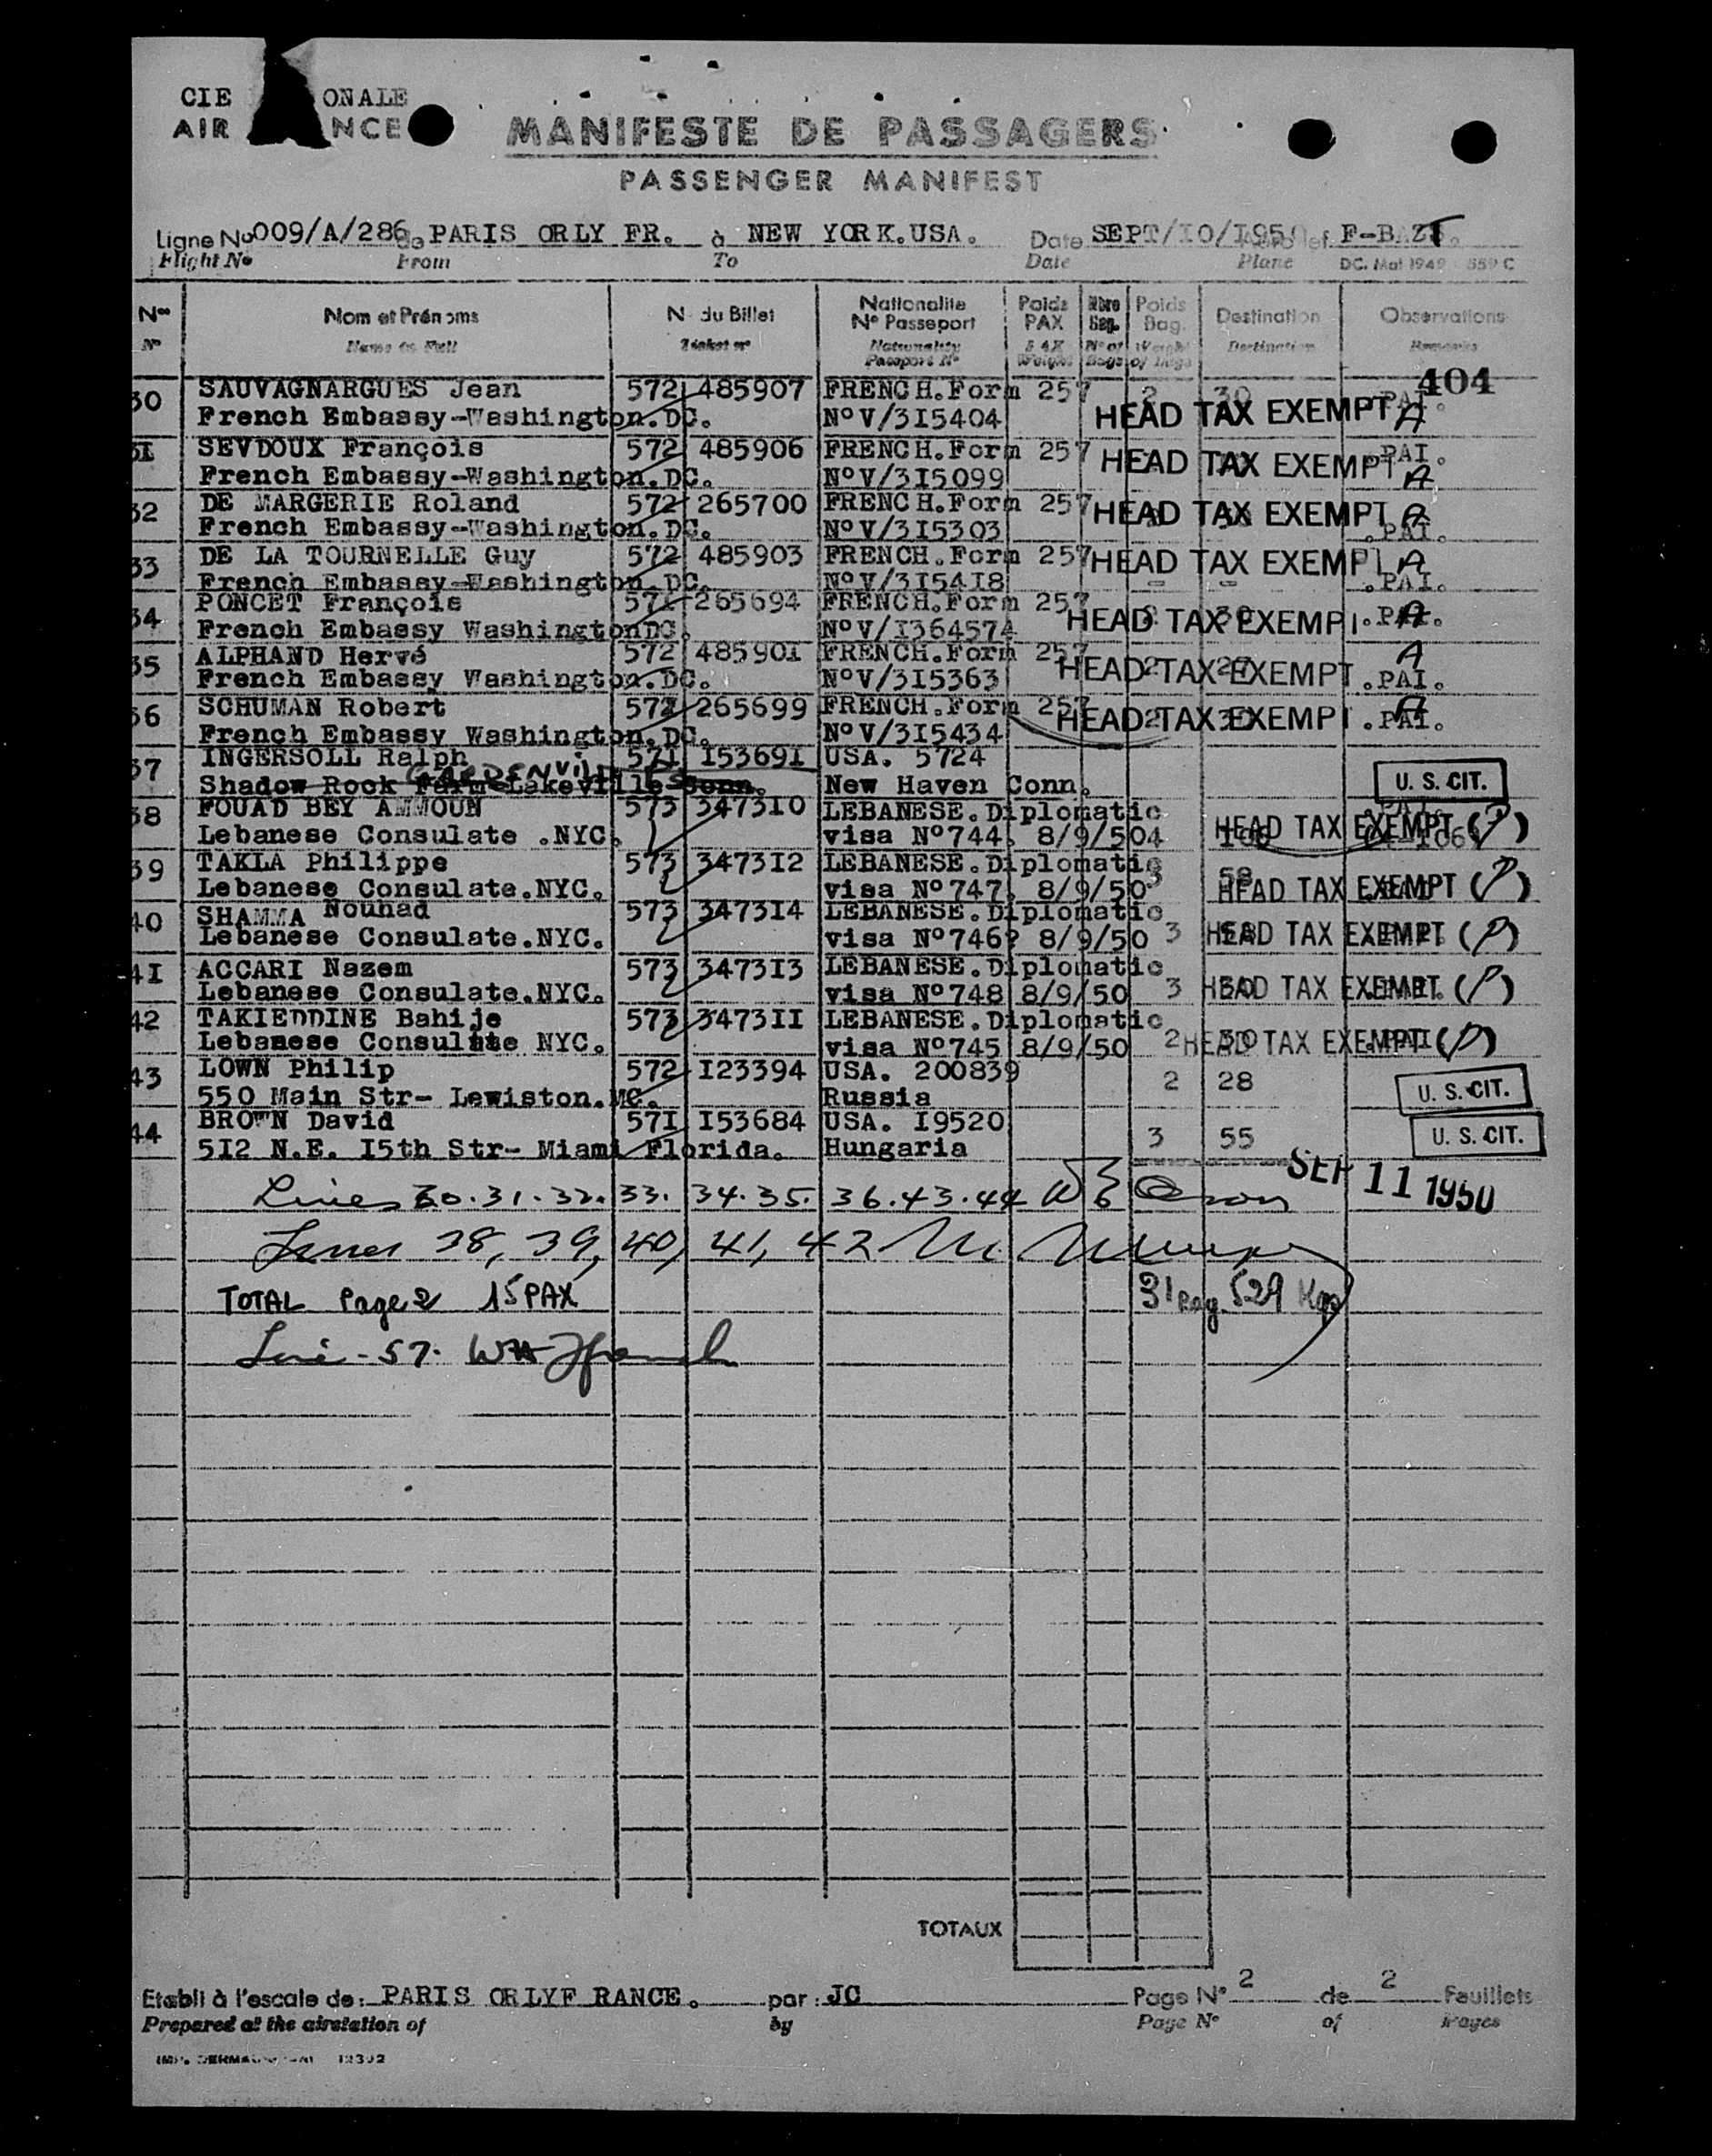 CIE ONALE
AIR NCE
MANIFESTE DE PASSAGERS
PASSENGER MANIFEST
Ligne No 009/A/286 de PARIS ORLY FR. à NEW YORK.USA. Date SEPT/I0/I950 F-BAZT
Flight No From To Date Plane DC. Mat 1949 559 C
Nos Nom et Prénoms N du Billet Nationalite No Passeport Poids PAX Nbre Bag. Poids Bag. Destination Observations
No Name in Full Ticket no Nationality Passport No PAX Weight No of Bags Weight of bags Destination Remarks
404
30 SAUVAGNARGUES Jean 572 485907 FRENCH.Form 257 2 30 PAI.
French Embassy-Washington.DC. NoV/3I5404 HEAD TAX EXEMPT A
3I SEVDOUX François 572 485906 FRENCH.Form 257 .PAI.
French Embassy-Washington.DC. NoV/3I5099 HEAD TAX EXEMPT A
32 DE MARGERIE Roland 572 265700 FRENCH.Form 257 HEAD TAX EXEMPT A
French Embassy-Washington.DC. NoV/3I5303 .PAI.
33 DE LA TOURNELLE Guy 572 485903 FRENCH.Form 257 HEAD TAX EXEMPT A
French Embassy-Washington.DC. NoV/3I54I8 - - .PAI.
34 PONCET François 57I 265694 FRENCH.Form 257
French Embassy WashingtonDC. NoV/I364574 HEAD TAX EXEMPT .PAI. A
35 ALPHAND Hervé 572 48590I FRENCH.Form 257 A
French Embassy Washington.DC. NoV/3I5363 HEAD TAX EXEMPT 2 27 .PAI.
36 SCHUMAN Robert 572 265699 FRENCH.Form 257 HEAD TAX EXEMPT 2 30 .PAI. A
French Embassy Washington.DC. NoV/3I5434
37 INGERSOLL Ralph 57I I5369I USA. 5724
Shadow Rock Farm-Lakeville Conn. New Haven Conn. U. S. CIT.
38 FOUAD BEY AMMOUN 573 3473I0 LEBANESE.Diplomatic
Lebanese Consulate .NYC. visa No744. 8/9/50 4 I06 HEAD TAX EXEMPT (P)
39 TAKLA Philippe 573 3473I2 LEBANESE.Diplomatic
Lebanese Consulate.NYC. visa No747. 8/9/50 3 58 HEAD TAX EXEMPT (P)
40 SHAMMA Nouhad 573 3473I4 LEBANESE.Diplomatic
Lebanese Consulate.NYC. visa No746? 8/9/50 3 HEAD TAX EXEMPT (P)
4I ACCARI Nazem 573 3473I3 LEBANESE.Diplomatic
Lebanese Consulate.NYC. visa No748 8/9/50 3 HEAD TAX EXEMPT (P)
42 TAKIEDDINE Bahije 573 3473II LEBANESE.Diplomatic
Lebanese Consulate NYC. visa No745 8/9/50 2 HEAD TAX EXEMPT (P)
43 LOWN Philip 572 I23394 USA. 200839
550 Main Str- Lewiston.MC. Russia 2 28 U. S. CIT.
44 BROWN David 57I I53684 USA. I9520
5I2 N.E. I5th Str- Miami Florida. Hungaria 3 55 U. S. CIT.
SEP 11 1950
Lines 30.31.32.33.34.35.36.43.44
Lines 38, 39, 40, 41, 42
TOTAL Page 2 15 PAX 31 Bag 529 Kgs
Line - 57.
TOTAUX
Etabli à l'escale de: PARIS ORLYF RANCE. par: JC Page No 2 de 2 Feuillets
Prepared at the airstation of by Page No of Pages